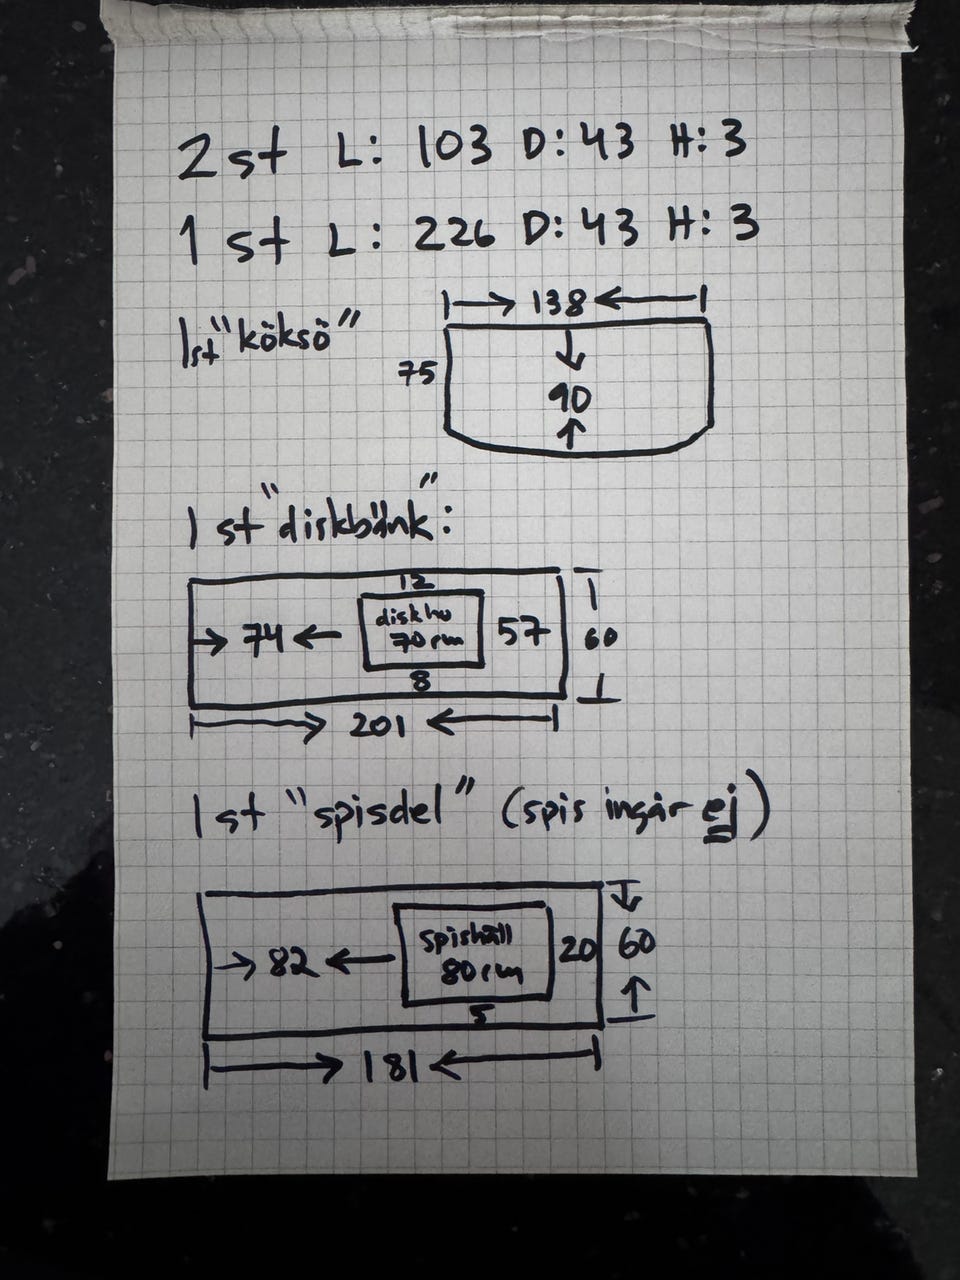 2 st L: 103 D: 43 H: 3
1 st L: 226 D: 43 H: 3
138
1st "köksö"
75
90
1 st "diskbänk":
12
diskho
74
70 cm
57
60
8
201
1 st "spisdel" (spis ingår ej)
spishäll
82
80 cm
20
60
5
181